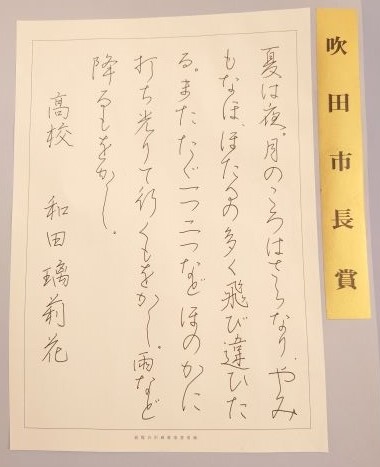 吹田市長賞
夏は夜。月のころはさらなり、やみ
もなほ、ほたるの多く飛び違ひた
る。また、ただ一つ二つなどほのかに
打ち光りて行くもをかし。雨など
降るもをかし。
高校 和田璃莉花